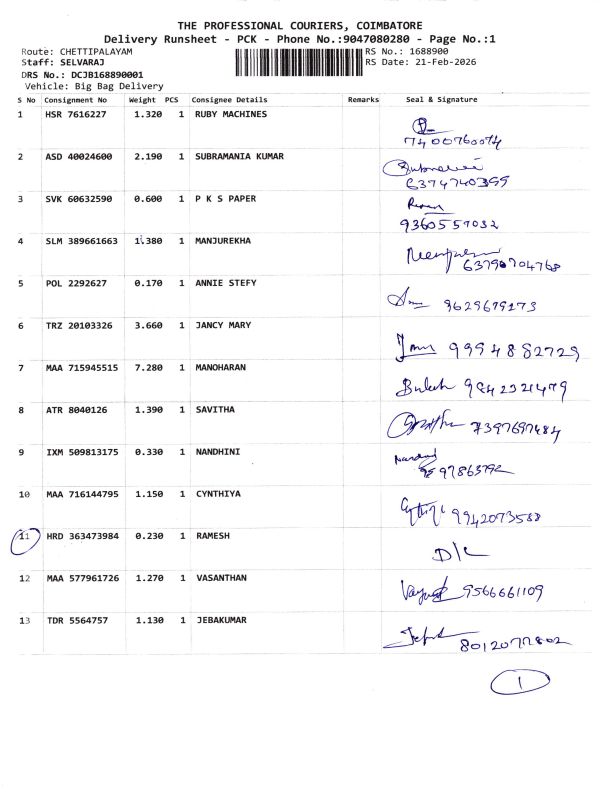 THE PROFESSIONAL COURIERS, COIMBATORE
Delivery Runsheet - PCK - Phone No.:9047080280 - Page No.:1
Route: CHETTIPALAYAM RS No.: 1688900
Staff: SELVARAJ RS Date: 21-Feb-2026
DRS No.: DCJB168890001
Vehicle: Big Bag Delivery
S No Consignment No Weight PCS Consignee Details Remarks Seal & Signature
1 HSR 7616227 1.320 1 RUBY MACHINES
7400760074
2 ASD 40024600 2.190 1 SUBRAMANIA KUMAR
6374740399
3 SVK 60632590 0.600 1 P K S PAPER
9360557032
4 SLM 389661663 1.380 1 MANJUREKHA
5 POL 2292627 0.170 1 ANNIE STEFY
9629679173
6 TRZ 20103326 3.660 1 JANCY MARY
9994882729
7 MAA 715945515 7.280 1 MANOHARAN
8 ATR 8040126 1.390 1 SAVITHA
7397697484
9 IXM 509813175 0.330 1 NANDHINI
10 MAA 716144795 1.150 1 CYNTHIYA
9942073588
11 HRD 363473984 0.230 1 RAMESH
D/L
12 MAA 577961726 1.270 1 VASANTHAN
9566661109
13 TDR 5564757 1.130 1 JEBAKUMAR
8012077802
1